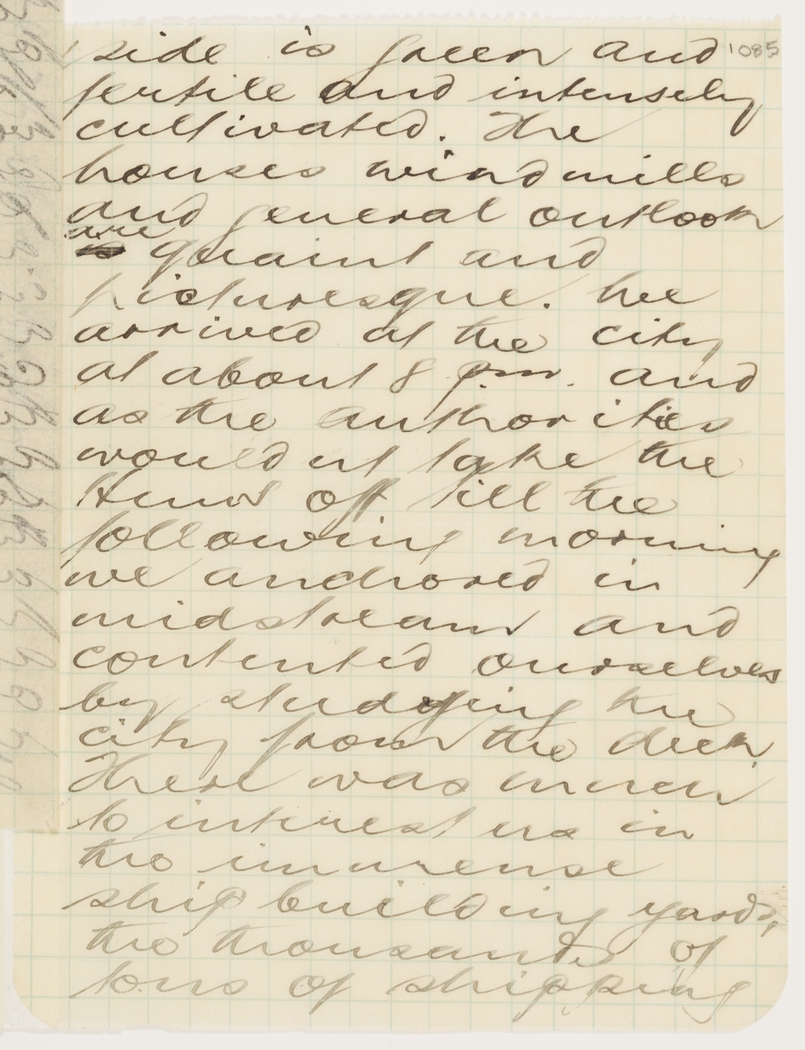 side is green and 1085
fertile and intensely
cultivated. The
houses windmills
and general outlook
are quaint and
picturesque. We
arrived at the city
at about 8 p.m. and
as the authorities
would nt take the
Huns off till the
following morning
we anchored in
midstream and
contented ourselves
by studying the
city from the deck
There was much
to interest us in
the immense
ship building yards,
the thousands of
tons of shipping